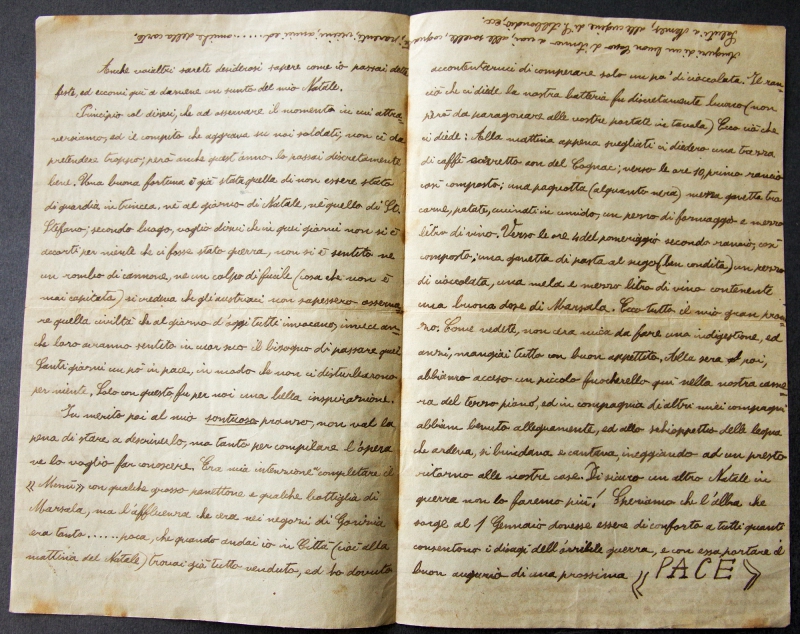 Anche voialtri sarete desiderosi sapere come io passai dette
feste, ed eccomi qui a darvene un sunto del mio Natale.
Principio col dirvi, che ad osservare il momento in cui attra
versiamo, ed il compito che aggrava su noi soldati, non ci da
pretendere troppo; però anche quest'anno lo passai discretamente
bene. Una buona fortuna è già stata quella di non essere stato
di guardia in trincea, nè al giorno di Natale, nè quello di St.
Stefano; secondo luogo, voglio dirvi che in quei giorni non si è
accorti per niente che ci fosse stato guerra, non si è sentito ne
un rombo di cannone, nè un colpo di fucile (cosa che non è
mai capitata) si credeva che gli austriaci non sapessero osserva
re quella civiltà che al giorno d'oggi tutti invocano, invece an-
che loro avranno sentito in cuor suo il bisogno di passare quei
Santi giorni un pò in pace, in modo che non ci disturbarono
per niente. Solo con questo fu per noi una bella inspirazione.
In merito poi al mio sontuoso pranzo, non val la
pena di stare a descriverlo, ma tanto per compilare l'opera
ve lo voglio far conoscere. Era mia intenzione completare il
«Menù» con qualche grosso panettone e qualche bottiglia di
Marsala, ma l'affluenza che c'era nei negozi di Gorizia
era tanta......poca, che quando andai io in Città (cioè alla
mattina del Natale) trovai già tutto venduto, ed ho dovuto
accontentarmi di comperare solo un po' di cioccolata. Il ran-
cio che ci diede la nostra batteria fu discretamente buono (non
però da paragonare alle vostre portate in tavola) Ecco ciò che
ci diede: Alla mattina appena svegliati ci diedero una tazza
di caffè corretto con del Cognac; verso le ore 10, primo rancio
così composto; una pagnotta (alquanto nera) mezza gavetta tra
carne, patate, cucinati in umido, un pezzo di formaggio e mezzo
litro di vino. Verso le ore 4 del pomeriggio secondo rancio, così
composto; una gavetta di pasta al sugo (ben condita) un pezzo
di cioccolata, una mela e mezzo litro di vino contenente
una buona dose di Marsala. Ecco tutto il mio gran pran-
zo. Come vedete, non era mica da fare una indigestione, ed
anzi, mangiai tutto con buon appetito. Alla sera poi,
abbiamo acceso un piccolo fuocherello qui nella nostra came-
ra del terzo piano, ed in compagnia di altri miei compagni
abbiam bevuto allegramente, ed allo schioppettio della legna
che ardeva, si brindava e cantava, ineggiando ad un presto
ritorno alle nostre case. Di sicuro un altro Natale in
guerra non lo faremo più! Speriamo che l'alba che
sorge al 1° Gennaio dovesse essere di conforto a tutti quanti
consentono i disagi dell'orribile guerra, e con essa portare il
buon augurio di una prossima «PACE»
Auguri di un buon Capo d'Anno a voi, alle sorelle, cognati,
Saluti a Agnes, alle cugine di S. Alessandro, ecc.
parenti, vicini, amici ed......amiche della corte.